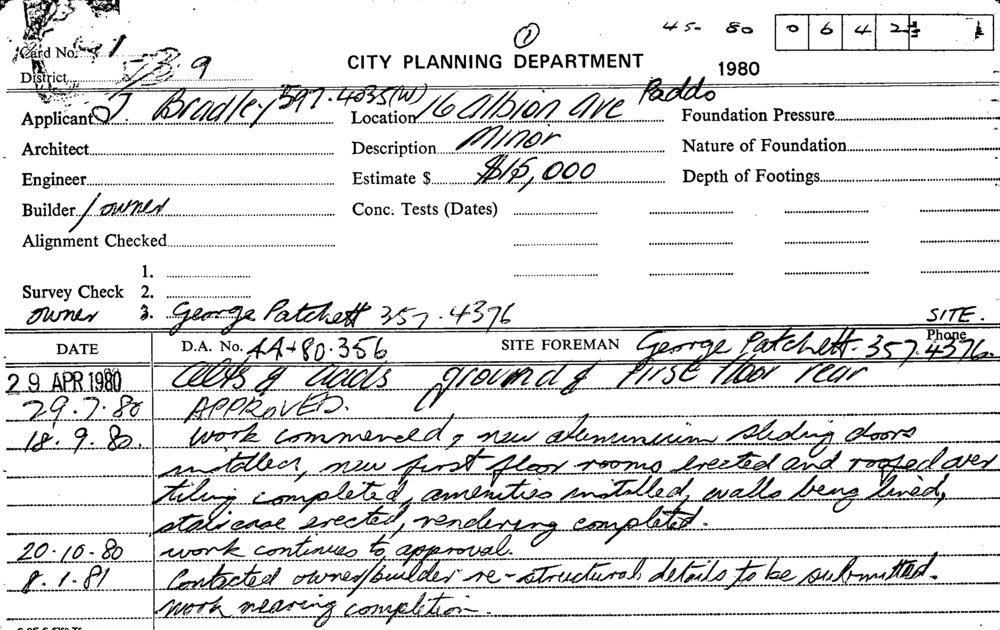 ① 45- 80 0 6 4 2
Card No. 1 CITY PLANNING DEPARTMENT 1980
District 9
Applicant J. Bradley 597.4035(W) Location 16 Albion Ave Paddo Foundation Pressure
Architect Description Minor Nature of Foundation
Engineer Estimate $ $15,000 Depth of Footings
Builder / owner Conc. Tests (Dates)
Alignment Checked
1.
Survey Check 2.
owner 3. George Patchett 357.4376 SITE.
DATE D.A. No. AA+80.356 SITE FOREMAN George Patchett. Phone 357.4376.
29 APR 1980 Alts & adds ground & first floor rear
29.7.80 APPROVED.
18.9.80. Work commenced, new aluminium sliding doors
installed, new first floor rooms erected and roofed over
tiling completed, amenities installed, walls being lined,
staircase erected, rendering completed.
20.10.80 work continues to approval.
8.1.81 Contacted owner/builder re-structural details to be submitted.
Work nearing completion.